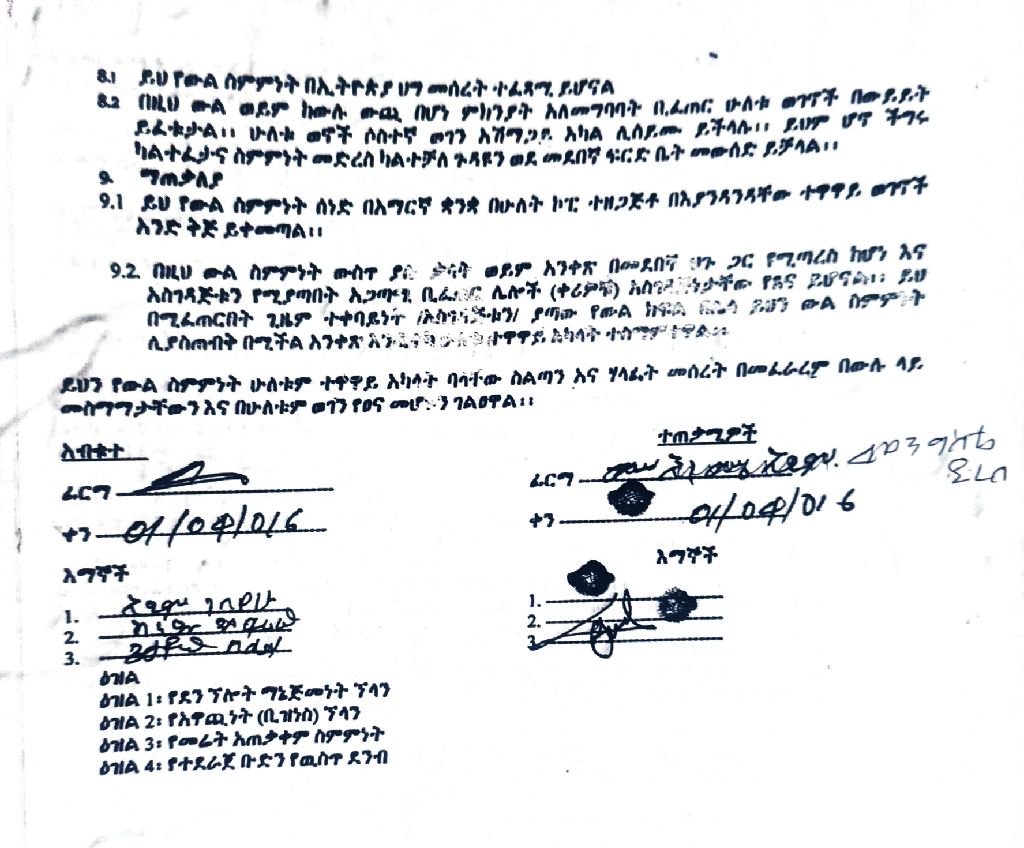 8.1 ይህ የውል ስምምነት በኢትዮጵያ ህግ መሰረት ተፈጻሚ ይሆናል
8.2 በዚህ ውል ወይም ከውሉ ውጪ በሆነ ምክንያት አለመግባባት ቢፈጠር ሁለቱ ወገኖች በውይይት
ይፈቱታል፡፡ ሁለቱ ወኖች ሶስተኛ ወገን አሸማጋይ አካል ሊሰይሙ ይችላሉ፡፡ ይህም ሆኖ ችግሩ
ካልተፈታና ስምምነት መድረስ ካልተቻለ ጉዳዩን ወደ መደበኛ ፍርድ ቤት መውሰድ ይቻላል፡፡
9. ማጠቃለያ
9.1 ይህ የውል ስምምነት ሰነድ በአማርኛ ቋንቋ በሁለት ኮፒ ተዘጋጅቶ በእያንዳንዳቸው ተዋዋይ ወገኖች
አንድ ቅጅ ይቀመጣል፡፡
9.2. በዚህ ውል ስምምነት ውስጥ ያለ ቃላት ወይም አንቀጽ በመደበኛ ህጉ ጋር የሚጣረስ ከሆነ እና
አስገዳጅቱን የሚያጣበት አጋጣሚ ቢፈጠር ሌሎች (ቀሪዎቹ) አስገዳጅነታቸው የጸና ይሆናል፡፡ ይህ
በሚፈጠርበት ጊዜም ተቀባይነት /አስገዳጅቱን/ ያጣው የውል ክፍል ይህን ውል ስምምነት
ሊያስጠብቅ በሚችል አንቀጽ ተዋዋይ አካላት ተስማምተዋል፡፡
ይህን የውል ስምምነት ሁለቱም ተዋዋይ አካላት ባላቸው ስልጣን እና ሃላፊት መሰረት በመፈራረም በውሉ ላይ
መስማማታቸውን እና በሁለቱም ወገን የፀና መሆኑን ገልፀዋል፡፡
አብቁተ
ፊርማ
ቀን 01/04/016
ተጠቃሚዎች
ፊርማ
ቀን 01/04/016
እማኞች
1.
2.
3.
እማኞች
1.
2.
3
ዕዝል
ዕዝል 1፡ የደን ፕሎት ማኔጅመነት ፕላን
ዕዝል 2፡ የአዋጪነት (ቢዝነስ) ፕላን
ዕዝል 3፡ የመሬት አጠቃቀም ስምምነት
ዕዝል 4፡ የተደራጀ ቡድን የዉስጥ ደንብ